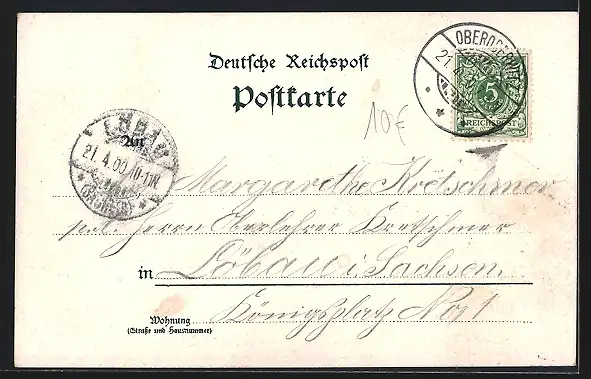 Deutsche Reichspost
Postkarte
OBERODERWITZ
21. 4.
5
REICHSPOST
10€
LÖBAU
21. 4. 00. 10-11V.
(SACHSEN)
An
Margarethe Kretschmer
Herrn Oberlehrer Kretschmer
in Löbau i. Sachsen.
Wohnung
(Straße und Hausnummer)
Königsplatz No. 1